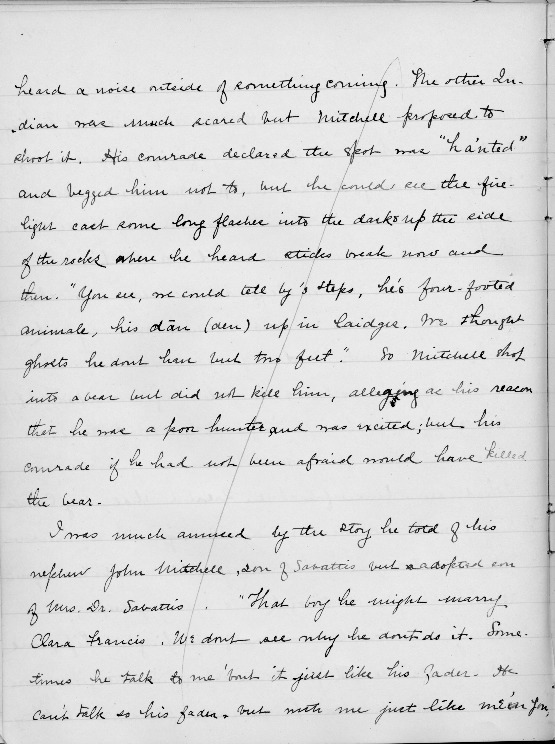 heard a noise outside of something coming. The other In-
dian was much scared but Mitchell proposed to
shoot it. His comrade declared the spot was "ha'nted"
and begged him not to, but he could see the fire-
light cast some long flashes into the dark up the side
of the rocks where he heard sticks break now and
then. "You see, we could tell by 's steps, he's four-footed
animale, his dān (den) up in laidges. We thought
ghosts he dont have but two feet." So Mitchell shot
into a bear but did not kill him, alleging as his reason
that he was a poor hunter and was excited; but his
comrade if he had not been afraid would have killed
the bear.
I was much amused by the story he told of his
nephew John Mitchell, son of Savattis but adopted son
of Mrs. Dr. Savattis. "That boy he might marry
Clara Francis. We dont see why he dont do it. Some-
times he talk to me 'bout it just like his fader. He
can't talk so his fader, but with me just like me'n you,